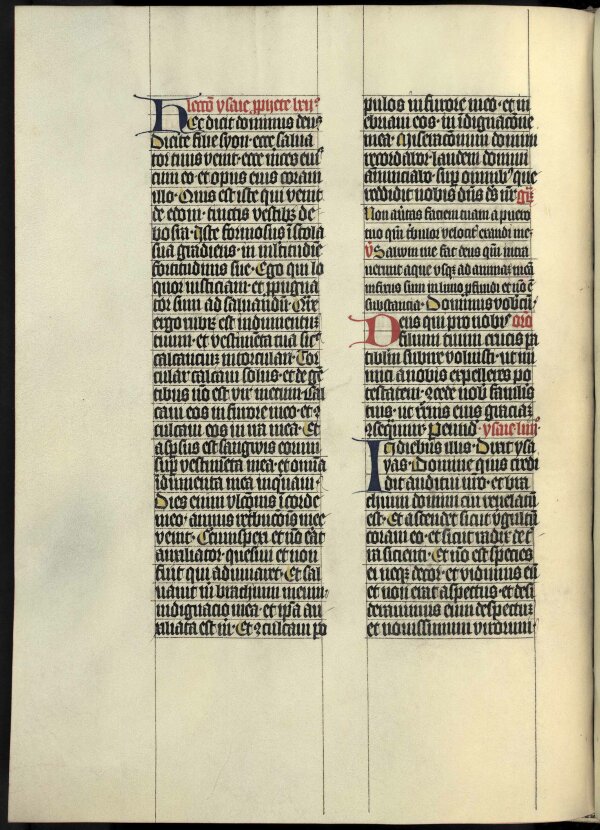 Lectō ysaie pphete lxij
Hec dicit dominus deus
Dicite filie syon · ecce salua
tor tuus venit · ecce m̄ces eiꝰ
cum eo · et opus eius coram
illo · Quis est iste qui venit
de edom · tinctis vestibꝫ de
bosra · Iste formosus ī stola
sua gradiens · in mltitudīe
fortitudinis sue · Ego qui lo
quor iusticiam · et ppugna
tor sum ad saluandū · Qre
ergo rubꝝ est indumentū
tuum · et vestimēta tua sic̄
calcanciū in torculari · Tor
cular calcaui solus · et de gē
tibus nō est vir mecum · cal
caui eos in furore meo · et 9
culcaui eos in ira mea · Et
aspsus est sangwis eorum
suꝑ vestimēta mea · et omīa
īdumenta mea inquīaui ·
Dies enim vlcōnis ī corde
meo · annus retbucōis mee
venit · Circumspexi et nō erat
auxiliator · quesiui et non
fuit qui adiuuaret · Et sal
uauit m̄ brachium meum ·
indignacio mea · et ipsa au
xiliata est m̄ · Et 9culcaui po
pulos in furore meo · et in
ebriaui eos in īdignacōne
mea · Miseracōnum domini
recordabor · laudem domini
annūciabo · suꝑ omībꝫ que
reddidit nobis dn̄s ds nr̄ · gr̄
Non au̓tas faciem tuam a puero
tuo qm̄ tbulor velocit̓ exaudi me
v̓ Saluum me fac deus qm̄ intra
uerunt aque vsqꝫ ad animā meā
infixus sum in limo pfundi et nō ē
substancia · Dominus vobcū
Deus qui pro nobis orō
filium tuum crucis pa
tibulū subire voluisti · ut ini
mici a nobis expelleres po
testatem · 9cede nob famulis
tuis · ut resurr̄
9sequamur · ysaie liii
In diebus illis · Dixit ysa
yas · Domine quis credi
dit auditui nr̄o · et bra
chium domini cui reuelatū
est · Et ascendet sicut v̓gultū
coram eo · et sicut radix de t̓
ra sicienti · Et nō est species
ei neqꝫ decor · et vidimus eū
et non erat aspectus · et desi
derauimus eum despectū
et nouissimum virorum ·